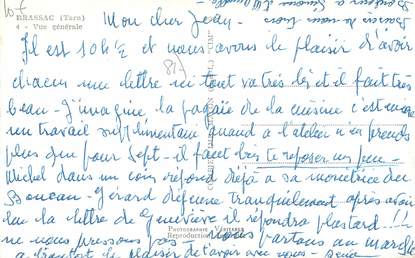 BRASSAC (Tarn)
4 - Vue générale
Mon cher Jean -
Il est 10 h ½ et nous avons le plaisir d'avoir
chacun une lettre ici tout va très bien et il fait très
beau - J'imagine la pagaïe de la cuisine c'est encore
un travail supplémentaire quand à l'atelier n'en prends
plus que pour Sept - il faut bien te reposer un peu -
Michel dans un coin répond déjà à sa monitrice de
Boucau - Gérard déjeune tranquillement après avoir
lu la lettre de Geneviève il répondra plus tard !!
ne nous pressons pas - nous partons au marché
le plaisir de t'avoir avec nous -
PHOTOGRAPHIE VÉRITABLE
Reproduction